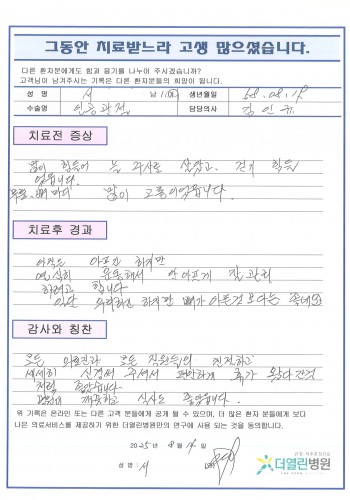 그동안 치료받느라 고생 많으셨습니다.
다른 환자분에게도 힘과 용기를 나누어 주시겠습니까?
고객님이 남겨주시는 기록은 다른 환자분들의 희망이 됩니다.
성 명 서 남 / 여 생년월일 58.08.18
수술명 인공관절 담당의사 김인규
치료전 증상
많이 힘들어 늘 주사로 살았고. 걷기 힘들
었읍니다.
무릎 뼈 마다 많이 고통이었읍니다.
치료후 경과
아직은 아프긴 하지만
열심히 운동해서 안아프게 잘 관리
하려고 합니다
일단 하지만 뼈가 아픈것 보다는 좋네요
감사와 칭찬
모든 의료진과 모든 직원들의 친절하고
세세히 신경써 주셔서 편안하게 휴가 왔다 간것
처럼 좋았습니다
깨끗하고 식사도 좋았습니다.
위 기록은 온라인 또는 다른 고객 분들에게 공개 될 수 있으며, 더 많은 환자 분들에게 보다
나은 의료서비스를 제공하기 위한 더열린병원만의 연구에 사용 되는 것을 동의합니다.
2025년 8월 14일
성명 : 서
더열린병원